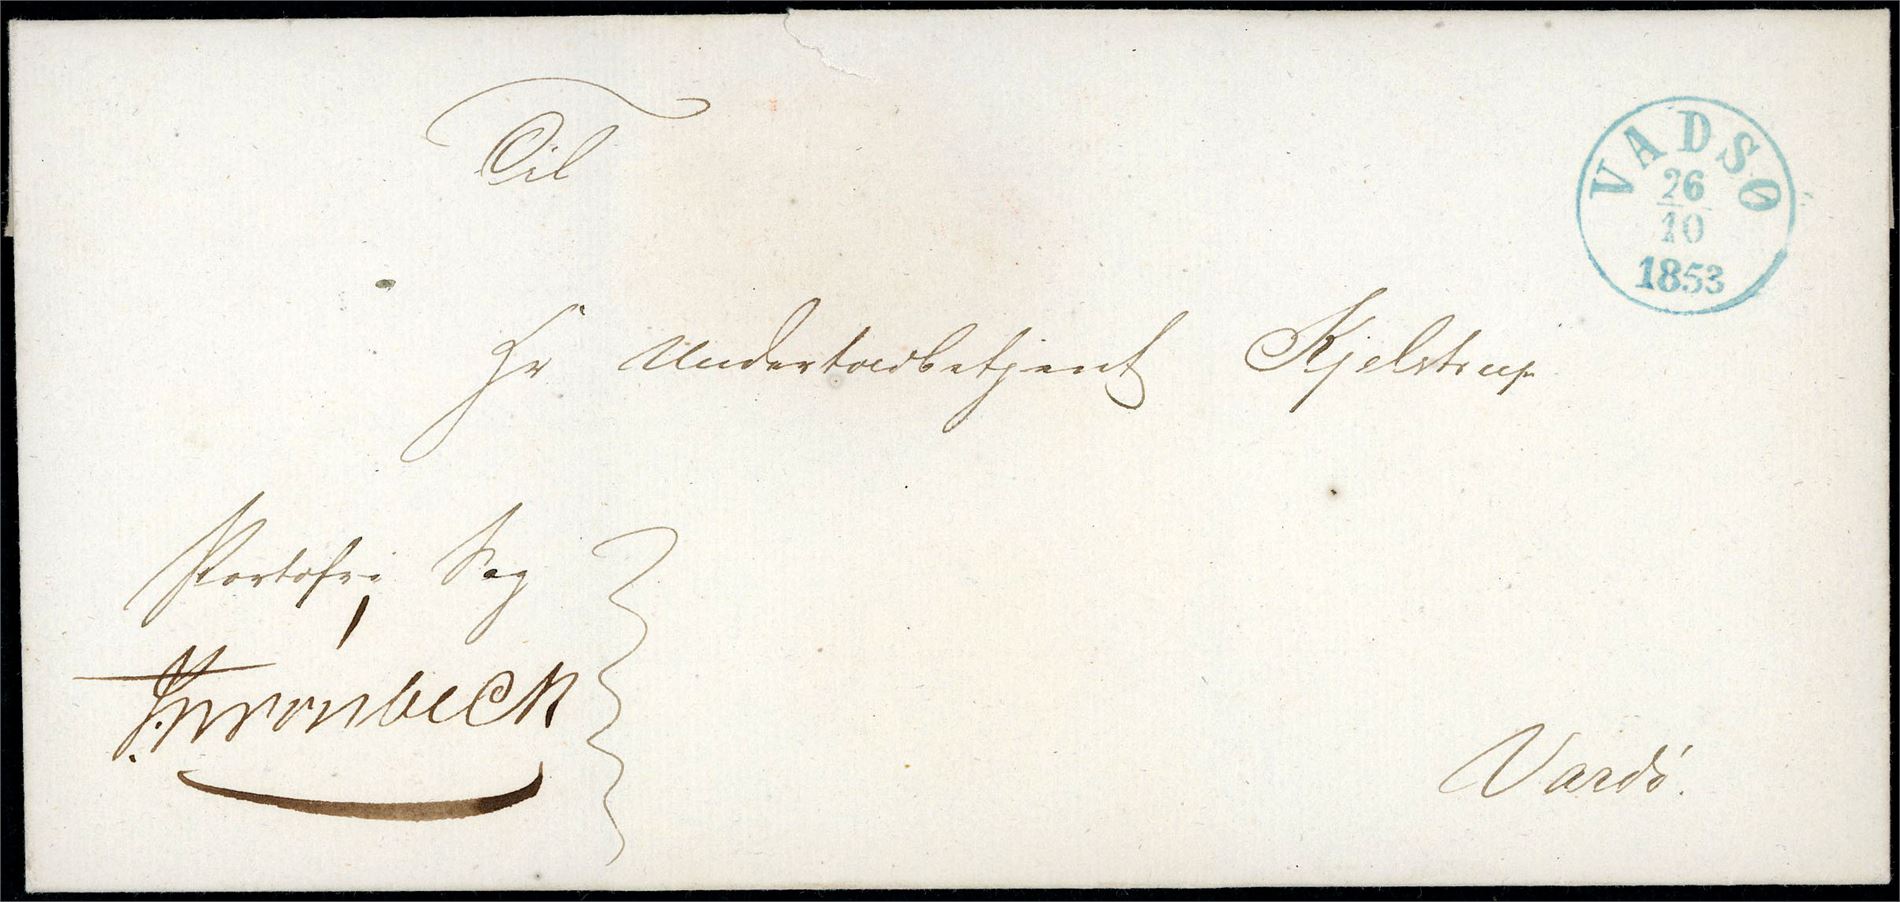 VADSØ
26
10
1853
Til
Hr Undertoldbetjent Kjelstrup
Portofri Sag
Vardö.